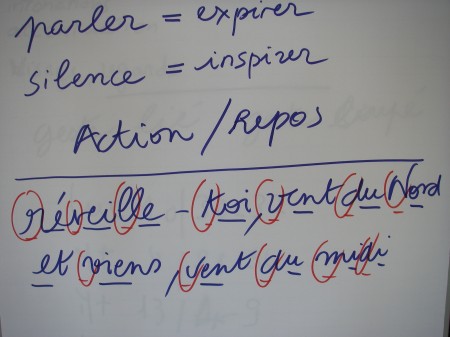 parler = expirer
silence = inspirer
Action / Repos
réveille-toi, vent du Nord
et viens, vent du midi